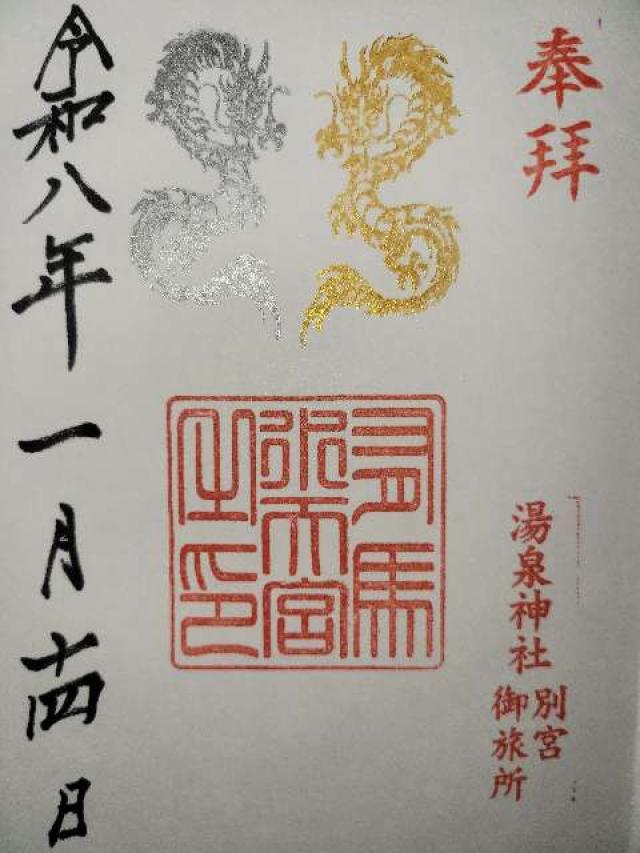 奉拝
湯泉神社
別宮
御旅所
有馬
水天宮
之印
令和八年一月十四日